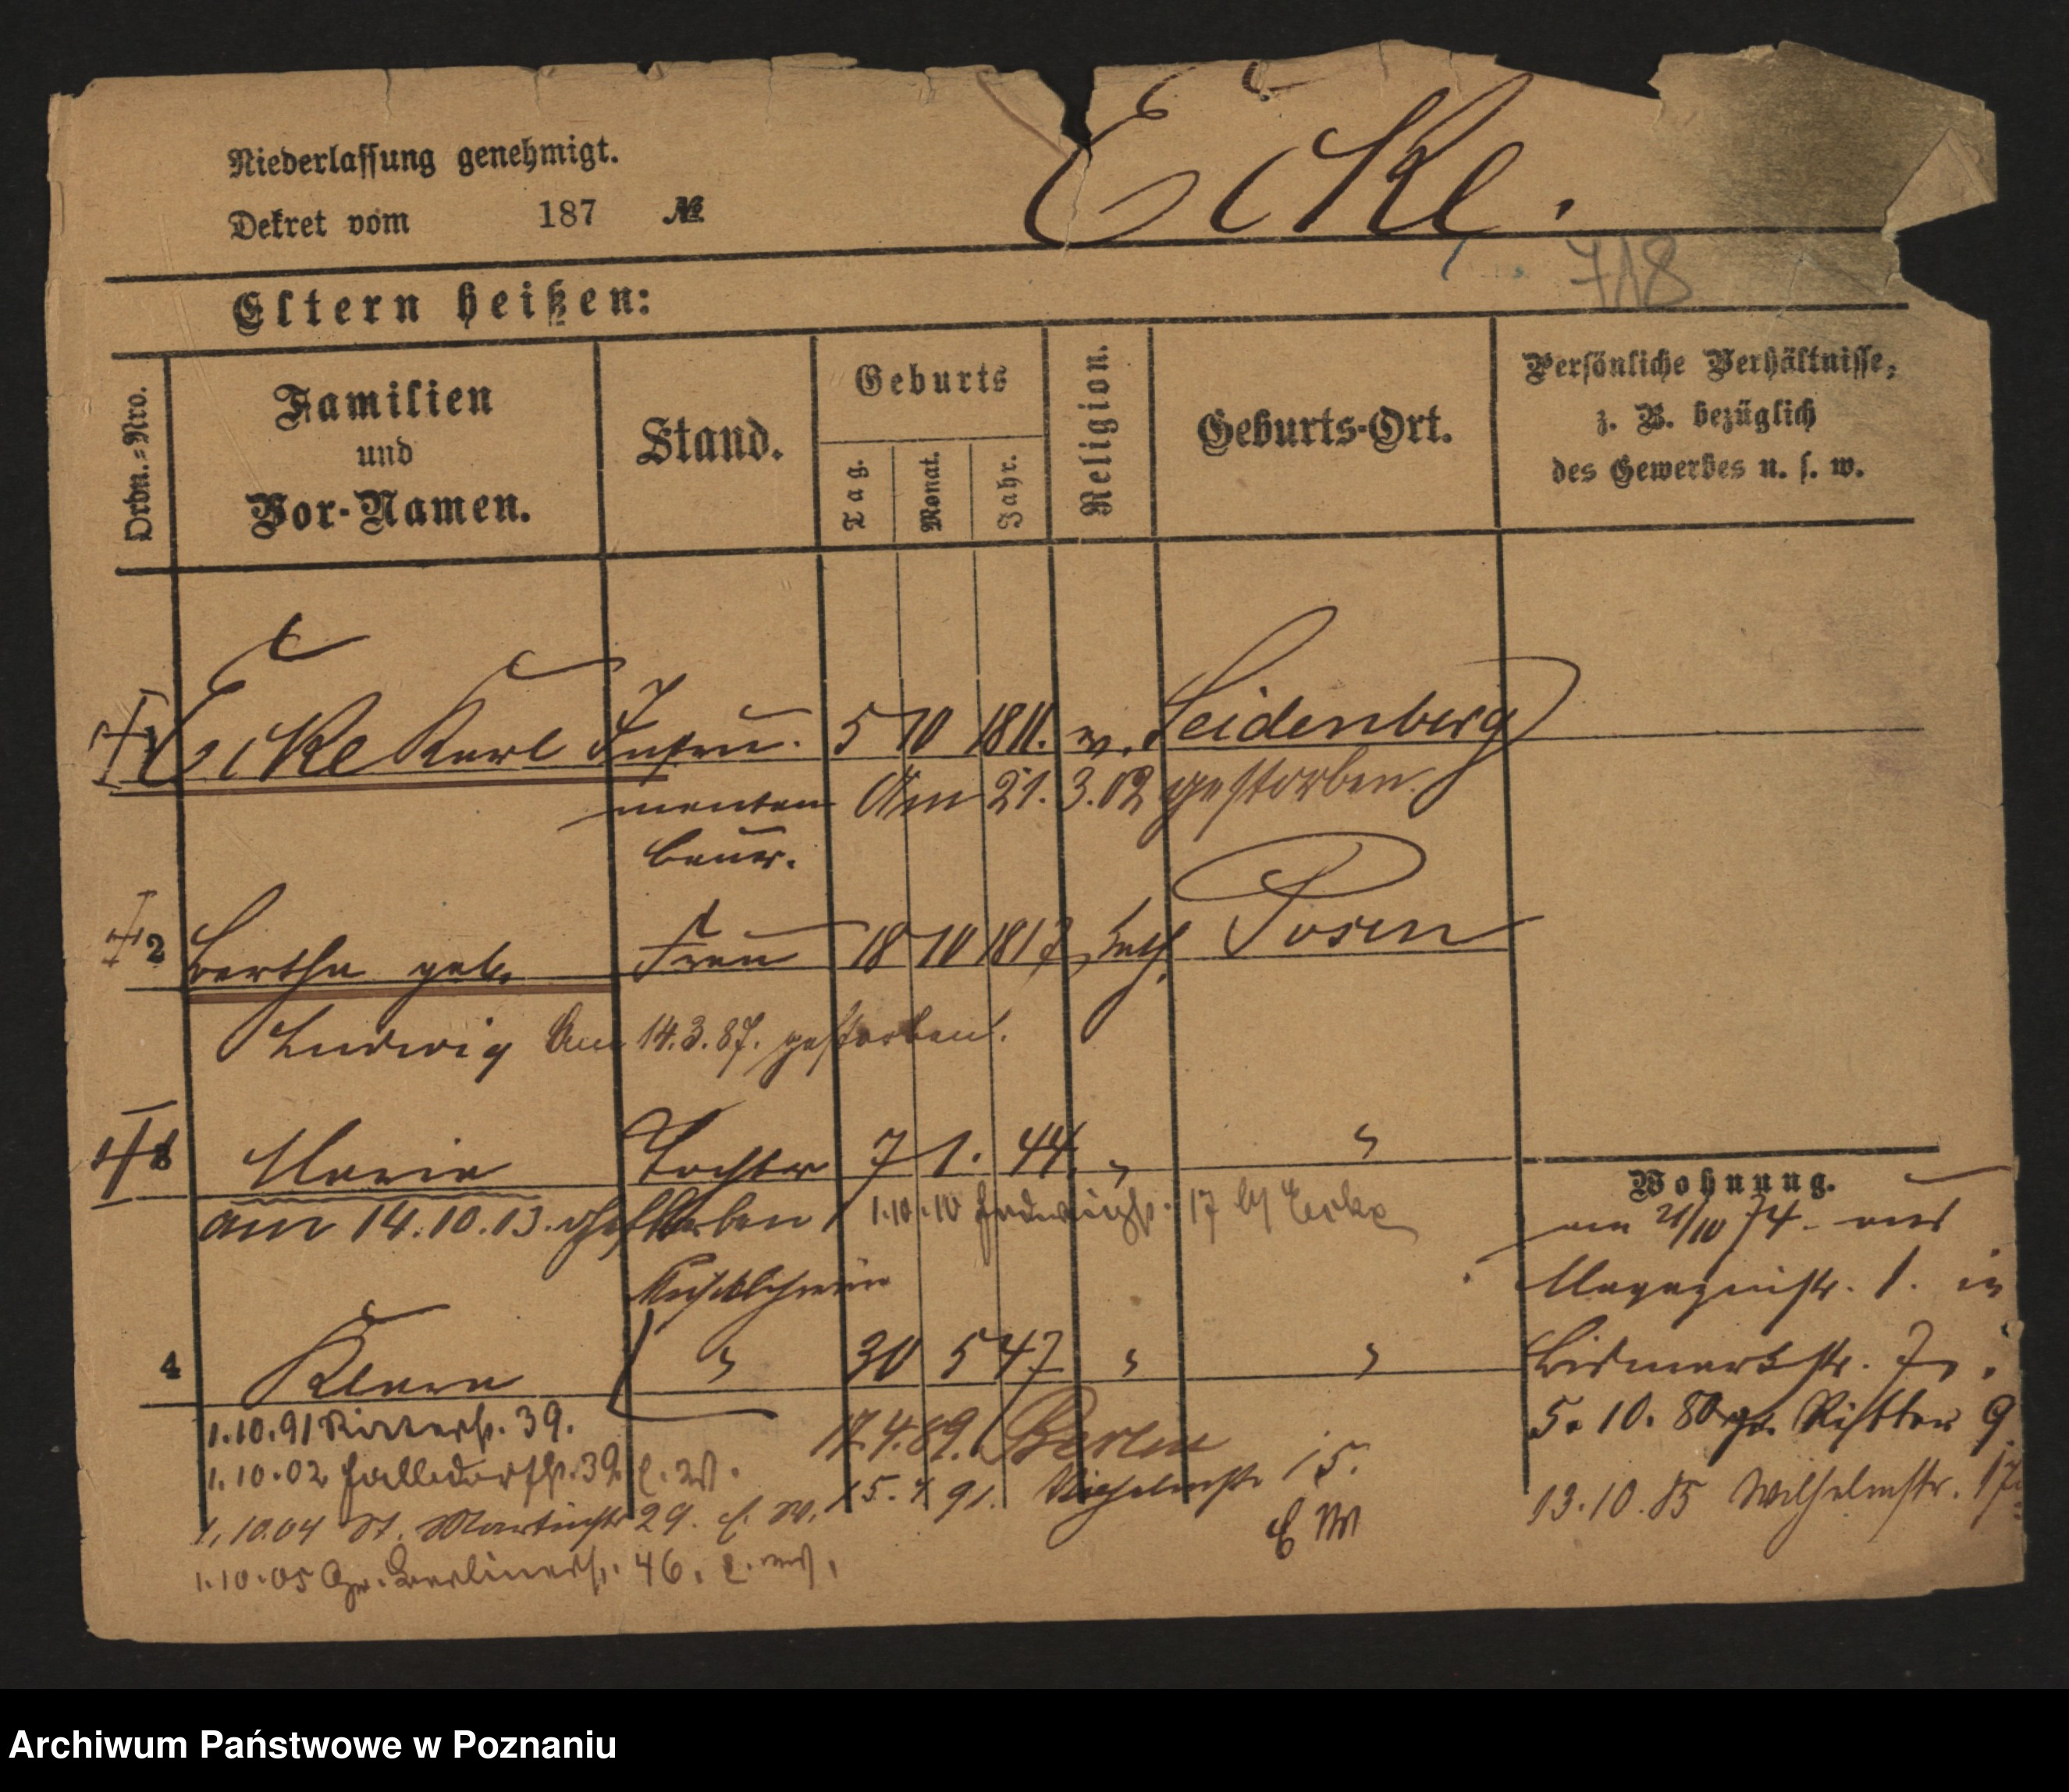 Niederlassung genehmigt.
Dekret vom 187 №
Ecke.
718
Eltern heißen:
Ordn.-Nro.
Familien und Vor-Namen.
Stand.
Geburts
Tag.
Monat.
Jahr.
Religion.
Geburts-Ort.
Persönliche Verhältnisse,
z. B. bezüglich
des Gewerbes u. s. w.
1 Ecke Karl Instru- 5 10 1811. ev. Seidenberg
menten Am 21.3.02 gestorben.
bauer.
2 Bertha geb. Frau 18 10 1817 kath. Posen
Ludwig Am 14.3.87. gestorben.
3 Maria Tochter 7 1. 44. " "
am 14.10.13. gestorben 1.10.10 17 Ecke
4 Klara " 30 5 47 " "
Wohnung.
am 21/10 74. aus
Magazinstr. 1. in
Bismarkstr. 7
5. 10. 80 gr. Ritter 9
13.10.85 Wilhelmstr. 17
1.10.91 Ritterstr. 39. 17.4.89. Berlin
1.10.02 39 E.W. 15.4.91. Wilhelmstr. 15.
1.10.04 St. Martinstr. 29. E. W. E W
1.10.05 Gr. Berlinerstr. 46.
Archiwum Państwowe w Poznaniu